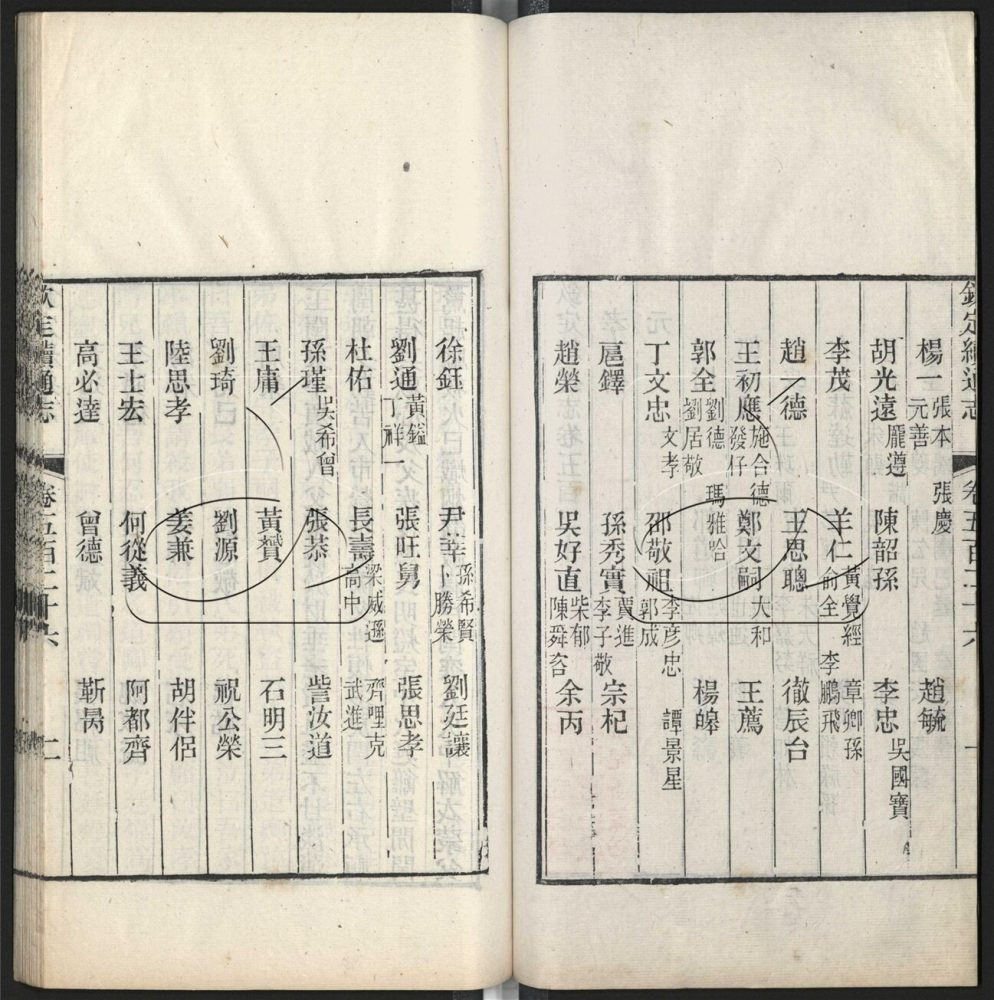 欽定續通志 卷五百二十六 一
楊一 張本 元善 張慶 趙毓
胡光遠 龐遵 陳韶孫 李忠 吳國寶
李茂 羊仁 黃覺經 俞全 章卿孫 李鵬飛
趙一德 王思聰 徹辰台
王初應 施合德 發仔 鄭文嗣 大和 王薦
郭全 劉德 劉居敬 瑪雅哈 楊皞
丁文忠 文孝 邵敬祖 李彥忠 郭成 譚景星
扈鐸 孫秀實 賈進 李子敬 宗杞
趙榮 吳好直 柴郁 陳舜咨 余丙
徐鈺 尹莘 孫希賢 卜勝榮 劉廷讓
劉通 黃鎰 丁祥一 張旺舅 張思孝
杜佑 長壽 梁威遜 高中 齊哩克 武進
孫瑾 吳希曾 張恭 訾汝道
王庸 黃贇 石明三
劉琦 劉源 祝公榮
陸思孝 姜兼 胡伴侶
王士宏 何從義 阿都齊
高必達 曾德 靳昺
欽定續通志 卷五百二十六 二